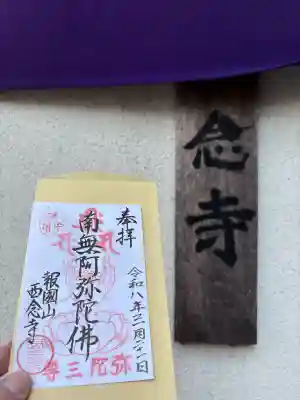 念寺
奉拝
令和八年
南無阿弥陀佛
報國山
西念寺
弥陀三尊